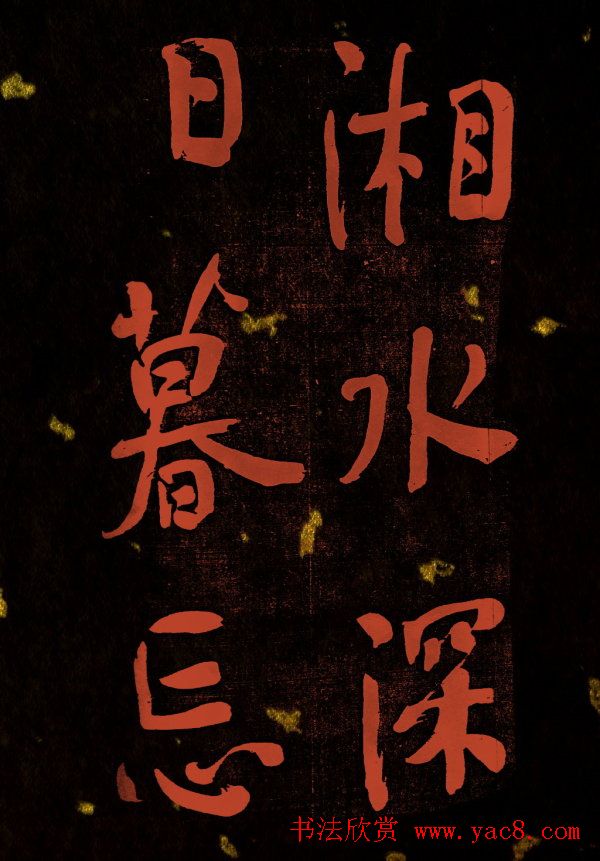 湘水深
日暮忘
书法欣赏 www.yac8.com